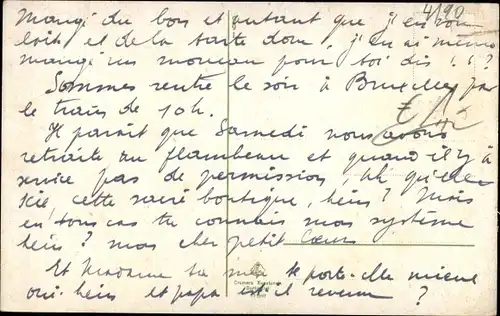 Mangé du bon et autant que j'en vou
lais et de la tarte dom, j'en ai même
mangé un morceau pour toi dis !.?
Sommes rentré le soir à Bruxelles par
le train de 10h.
Il parait que Samedi nous avons
retraite au flambeau et quand il y à
service pas de permission, ah qu'elle
scie, cette sacré boutique, hein? Mais
en tous cas tu connais mon système
hein? mon cher petit Cœur
Et Madame ta mère se porte-elle mieux
oui-hein et papa est il revenu ?
4/90